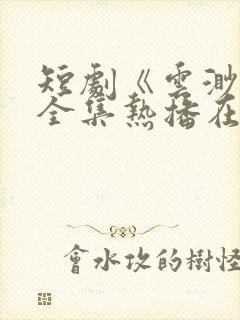 短劇《雲渺
全集熱播在
會水攻的樹怪